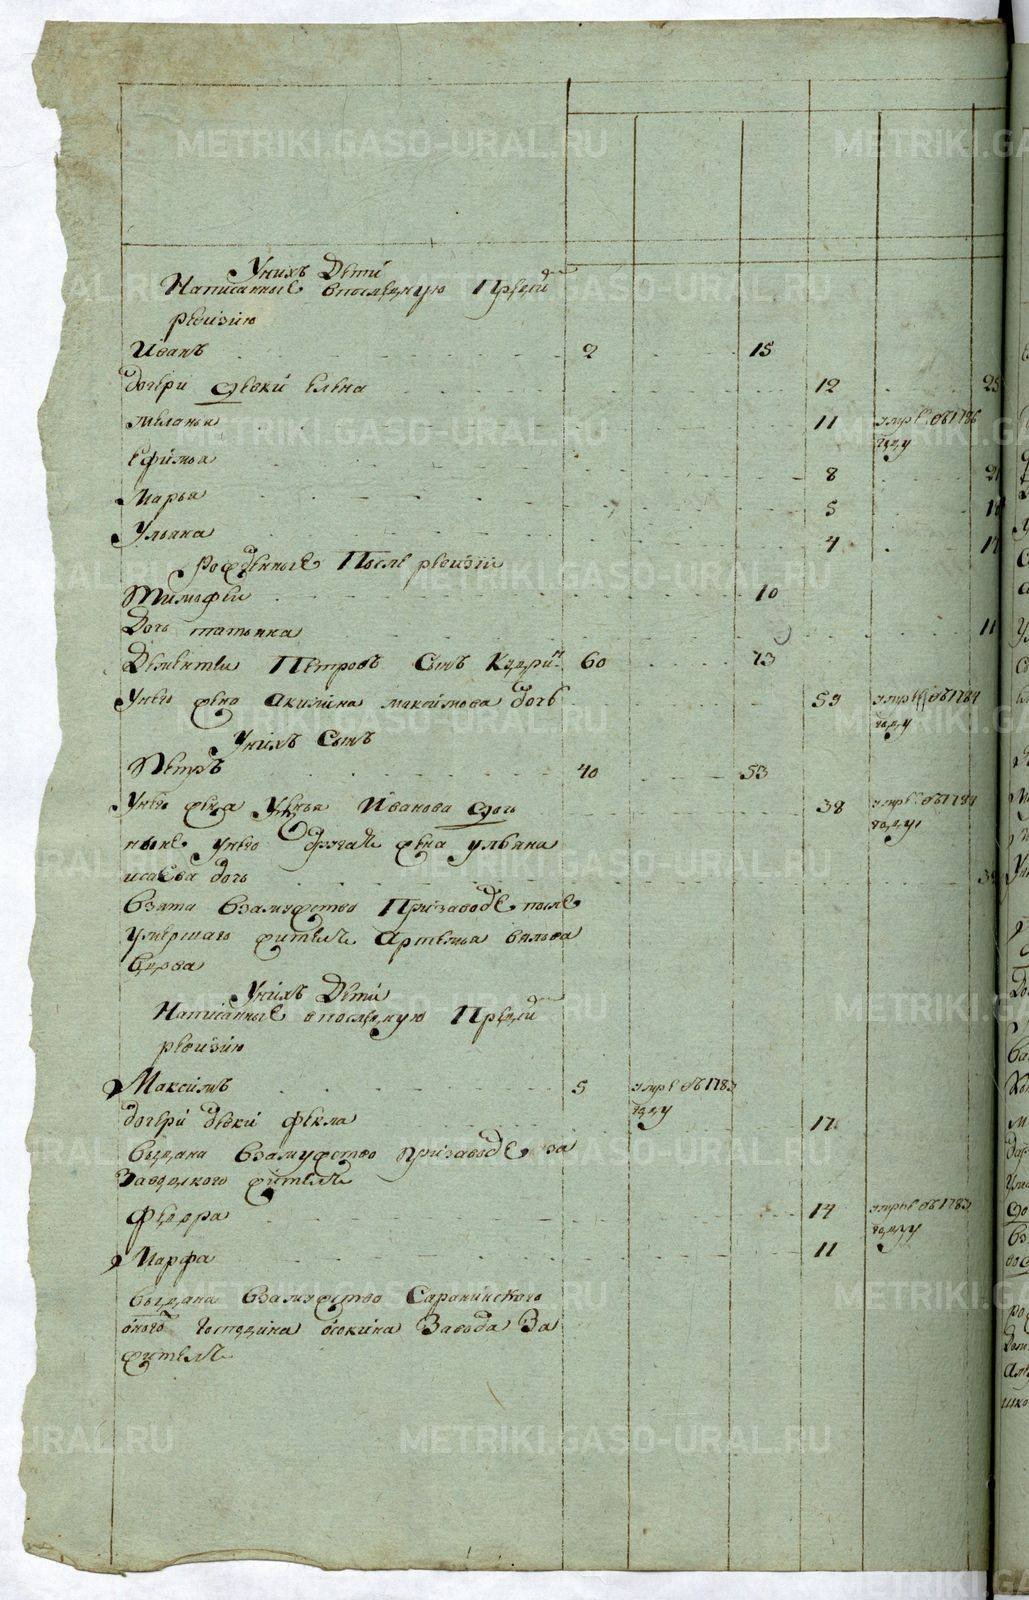 METRIKI.GASO-URAL.RU
У нихъ дети
Написанные в последнюю пред
ревизию
Иванъ 2 15
дочери девки елена 12 25
меланья 11 умре въ 1786
году
ефимья 8 21
Марья 5 18
Ульяна 4 17
рожденные После ревизии
Тимофеи 10
Дочь татьяна 11
Дементеи Петровъ Сынъ 60 73
У него жена Акилина максимова дочь 59 умре въ 1784
году
У нихъ Сынъ
Петръ 40 53
У него жена Иванова дочь 38 умре въ 1784
году
ныне у него другая жена ульяна
исаева дочь
взята в замужство При заводе после
умершаго жителя Артемья
вдова
У нихъ Дети
Написанные в последнюю Пред
ревизию
Максимъ 5 умре въ 1783
году
дочери девки фекла 17
выдана в замужство при заводе за
Заводского жителя
Федора 14 умре въ 1783
году
Марфа 11
выдана в замужство Саранинского
оного Господина осокина Завода За
жителя